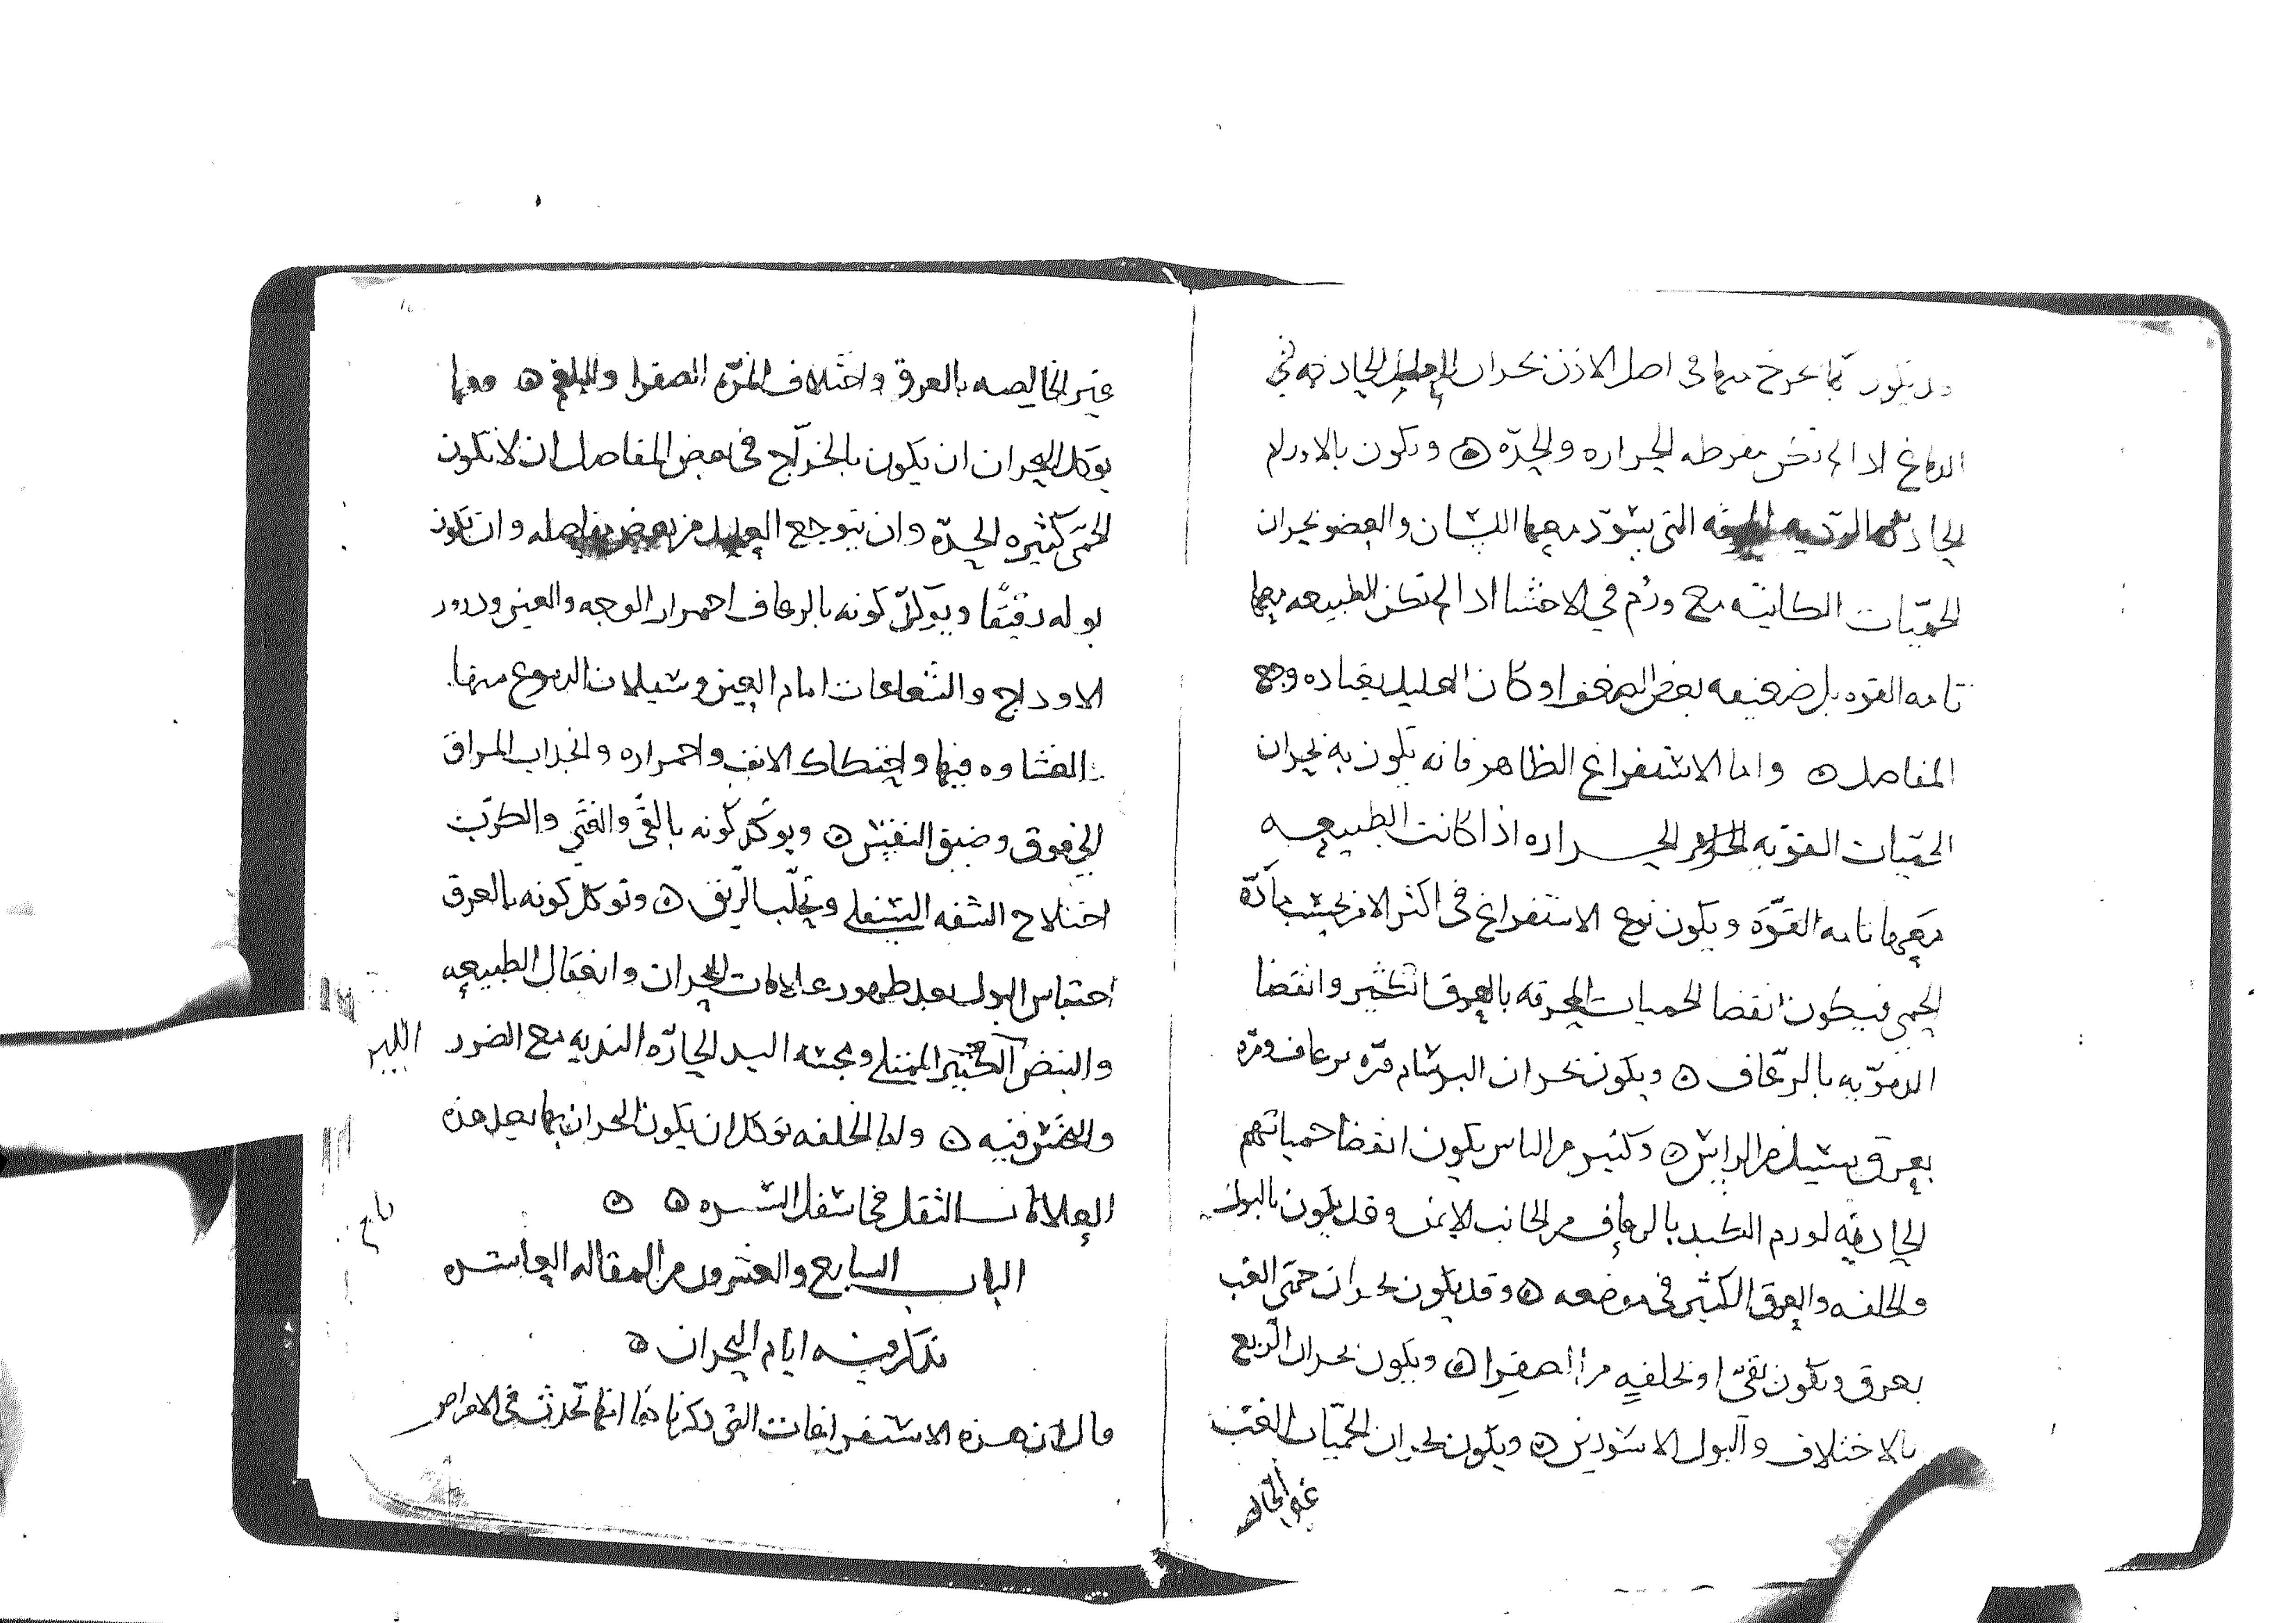 وقد يكون بما يخرج منها في اصل الاذن بحران الحادثه في
الدماغ اذا لم تكن مفرطه الحراره والحدّه ۞ ويكون بالاورام
الحادثه الرديه التي يسوّد معها اللسان والعضو بحران
الحمّيات الكائنه مع ورم في الاحشا اذا لم تكن الطبيعه معها
تامه القوه بل ضعيفه بعض الضعف او كان العليل يعتاده وجع
المفاصل ۞ واما الاستفراغ الظاهر فانه يكون به بحران
الحمّيات القويّه الحراره اذا كانت الطبيعه
معها تامه القوّه ويكون نوع الاستفراغ في اكثر الامر بحسب مادّة
الحمى فيكون انقضا الحميات المحرقه بالعرق الكثير وانقضا
الدمويّه بالرّعاف ۞ ويكون بحران البرسام مرّه برعاف ومرّه
بعرق يسيل من الراس ۞ وكثير من الناس يكون انقضا حمياتهم
الحادثه لورم الكبد بالرعاف من الجانب الايمن وقد يكون بالبول
والخلفه والعرق الكثير في موضعه ۞ وقد يكون بحران حمّى الغب
بعرق ويكون بقيّ او بخلفه مرا الصفرا ۞ ويكون بحران الربع
بالاختلاف والبول الاسودين ۞ ويكون بحران الحمّيات الغب
غير الخالصه
غير الخالصه بالعرق واختلاف المرّه الصفرا والبلغم ۞ ومما
يوكد البحران ان يكون بالخرّاج في بعض المفاصل ان لا تكون
الحمّى كثيره الحدّه وان يتوجع العليل من بعض مفاصله وان يكون
بوله رقيقًا ويوكّد كونه بالرعاف احمرار الوجه والعين ودرور
الاوداج والشعاعات امام العين وسيلان الدموع منها
الغشاوه فيها واحتكاك الانف واحمراره وانجذاب المراق
الى فوق وضيق النفس ۞ ويوكد كونه بالقيّ والغثي والكرب
اختلاج الشفه السفلى وتحلّب الرّيق ۞ وتوكد كونه بالعرق
احتباس البول بعد ظهور علامات البحران واعتقال الطبيعه
والنبض الكبير الممتلي ومجسّه اليد الحارّه النديه مع الضرر
فيه ۞ واما الخلفه توكد ان يكون البحران بها بعد هذه
العلامات الثقل في اسفل السره ۞ ۞
الباب السابع والعشرون من المقاله العاشره
نذكر فيه ايّام البحران ۞
قال ان هذه الاستفراغات التي ذكرناها انما تحدث في الامراض